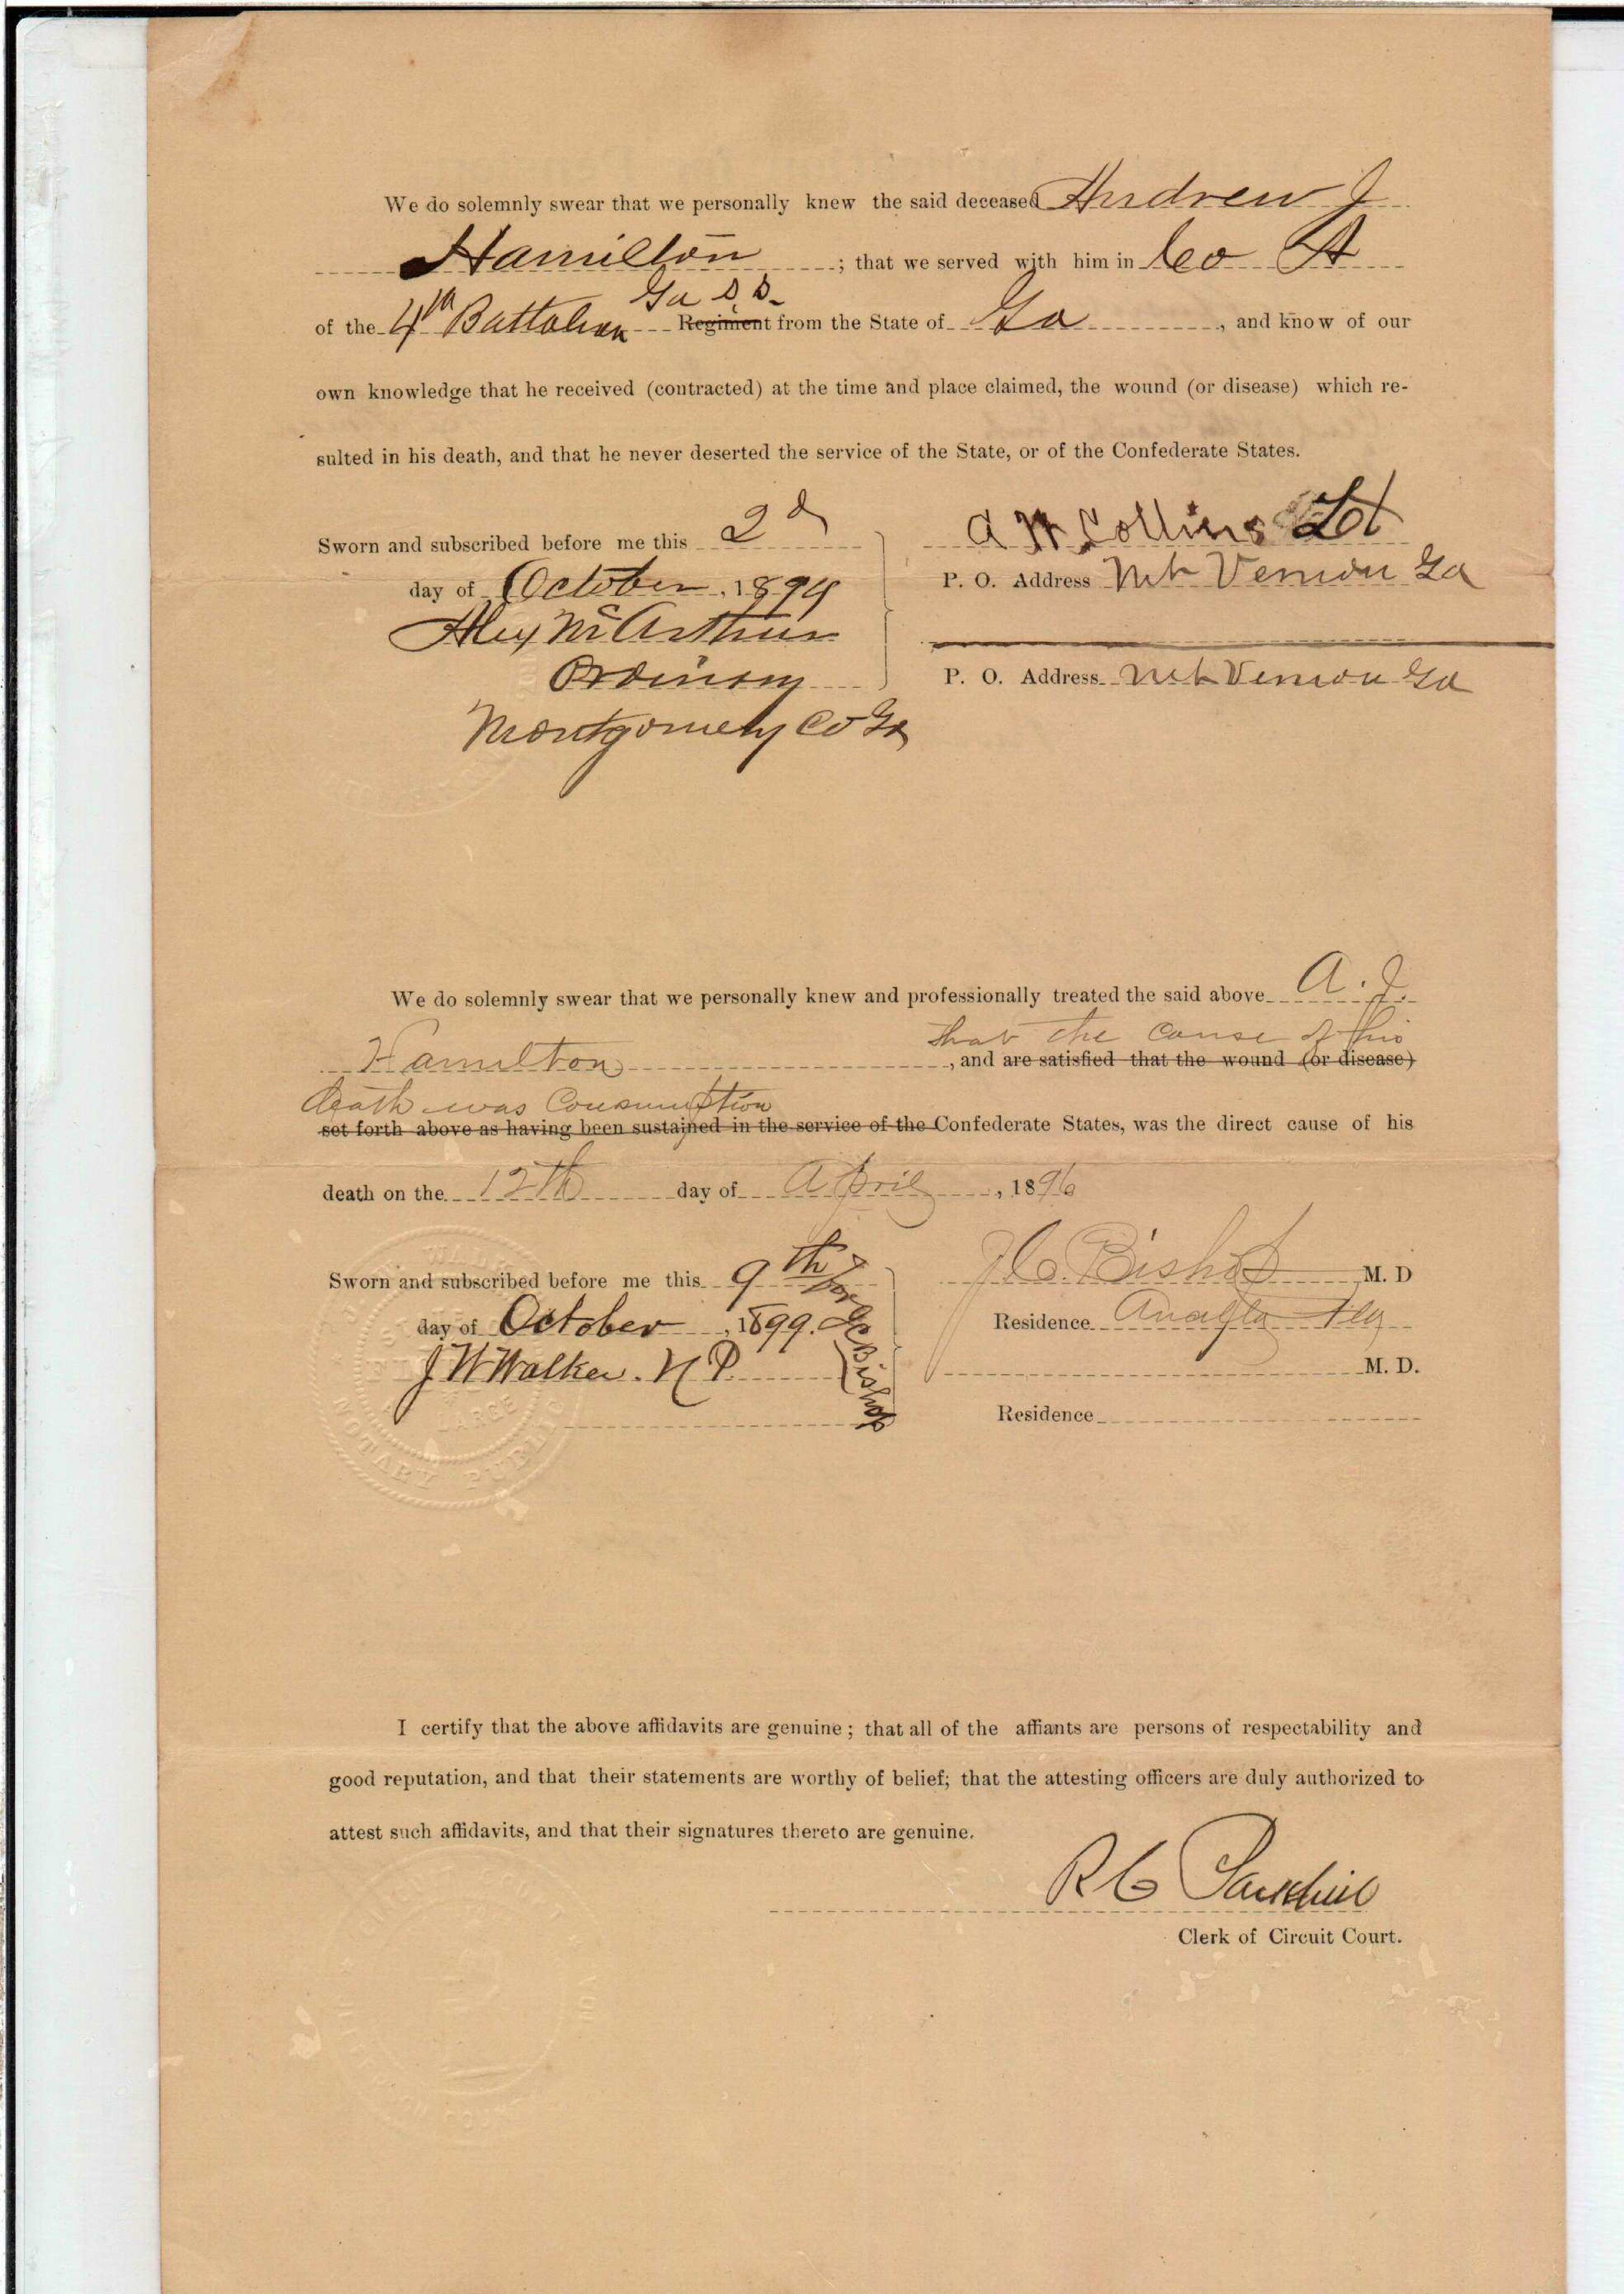 We do solemnly swear that we personally knew the said deceased Andrew J
Hamilton ; that we served with him in Co A
Ga S.S.
of the 4th Battalion Regiment from the State of Ga , and know of our
own knowledge that he received (contracted) at the time and place claimed, the wound (or disease) which re-
sulted in his death, and that he never deserted the service of the State, or of the Confederate States.
Sworn and subscribed before me this 2d
day of October, 1899
Alex McArthur
Ordinary
Montgomery Co Ga
A W Collins Lt
P. O. Address Mt Vernon Ga
P. O. Address Mt Vernon Ga
We do solemnly swear that we personally knew and professionally treated the said above A. J.
that the cause of his
Hamilton , and are satisfied that the wound (or disease)
death was Consumption
set forth above as having been sustained in the service of the Confederate States, was the direct cause of his
death on the 12th day of April , 1896
Sworn and subscribed before me this 9th
day of October , 1899.
J W Walker. N P.
for Dr Bishop
NOTARY PUBLIC
LARGE
J C Bishop M. D
Residence Fla
M. D.
Residence
I certify that the above affidavits are genuine; that all of the affiants are persons of respectability and
good reputation, and that their statements are worthy of belief; that the attesting officers are duly authorized to
attest such affidavits, and that their signatures thereto are genuine.
R C
Clerk of Circuit Court.